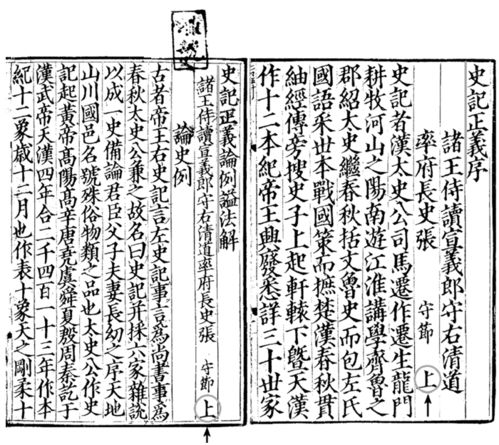 史記正義序
諸王侍讀宣義郎守右清道
率府長史張 守節 上
史記者漢太史公司馬遷作遷生龍門
耕牧河山之陽南遊江淮講學齊魯之
郡紹太史繼春秋括文魯史而包左氏
國語采世本戰國策而摭楚漢春秋貫
紬經傳旁搜史子上起軒轅下曁天漢
作十二本紀帝王興廢悉詳三十世家
史記正義論例謚法解
諸王侍讀宣義郎守右清道率府長史張 守節 上
論史例
古者帝王右史記言左史記事言爲尚書事爲
春秋太史公兼之故名曰史記并採六家雜說
以成一史備論君臣父子夫妻長幼之序天地
山川國邑名號殊俗物類之品也太史公作史
記起黃帝高陽高辛唐堯虞舜夏殷周秦訖于
漢武帝天漢四年合二千四百一十三年作本
紀十二象歲十二月也作表十象天之剛柔十